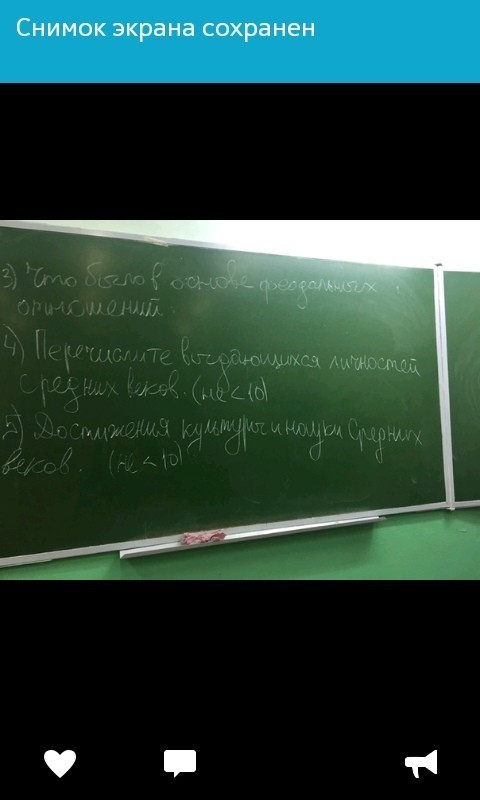 Снимок экрана сохранен
3) Что было в основе феодальных
отношений.
4) Перечислите выдающихся личностей
средних веков. (не < 10)
5) Достижения культуры и науки Средних
веков. (не < 10)